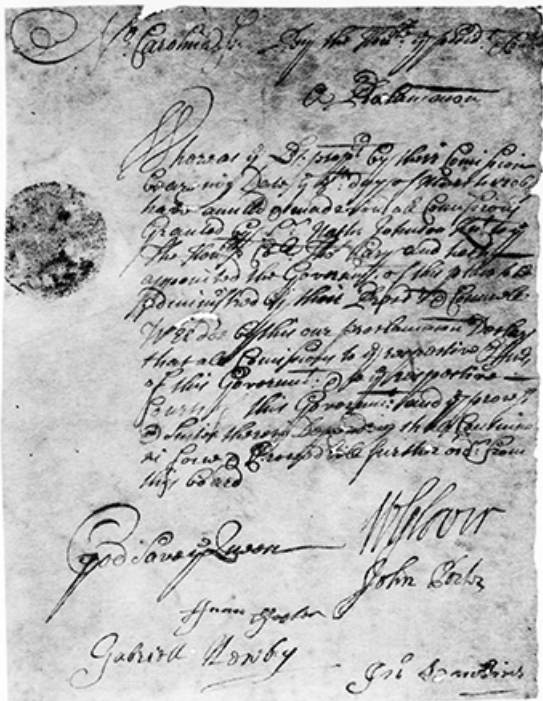 No. Carolina Sc. By the Honble ye presidt &
A Proclamation
Whereas ye Lds. propts by their Comission
bearing Date ye day of
have annulled & made void all Comissions
Granted by Sr Nathll Johnson Knt to
the Honble Coll Tho Cary and hath
appointed the Governmt of this place to be
administred by their Presidt & Councill
Wee doe by this our proclamation Declare
that all Comissions to ye respective Officers
of this Governmt & to ye respective
Courts this Governmt and ye process
& Suites therein Depending shall Continue
in force & till further ordr from
this board
God Save ye Queen
W Glover
John Porter
Foster
Gabriell Newby
Jno Hawkins